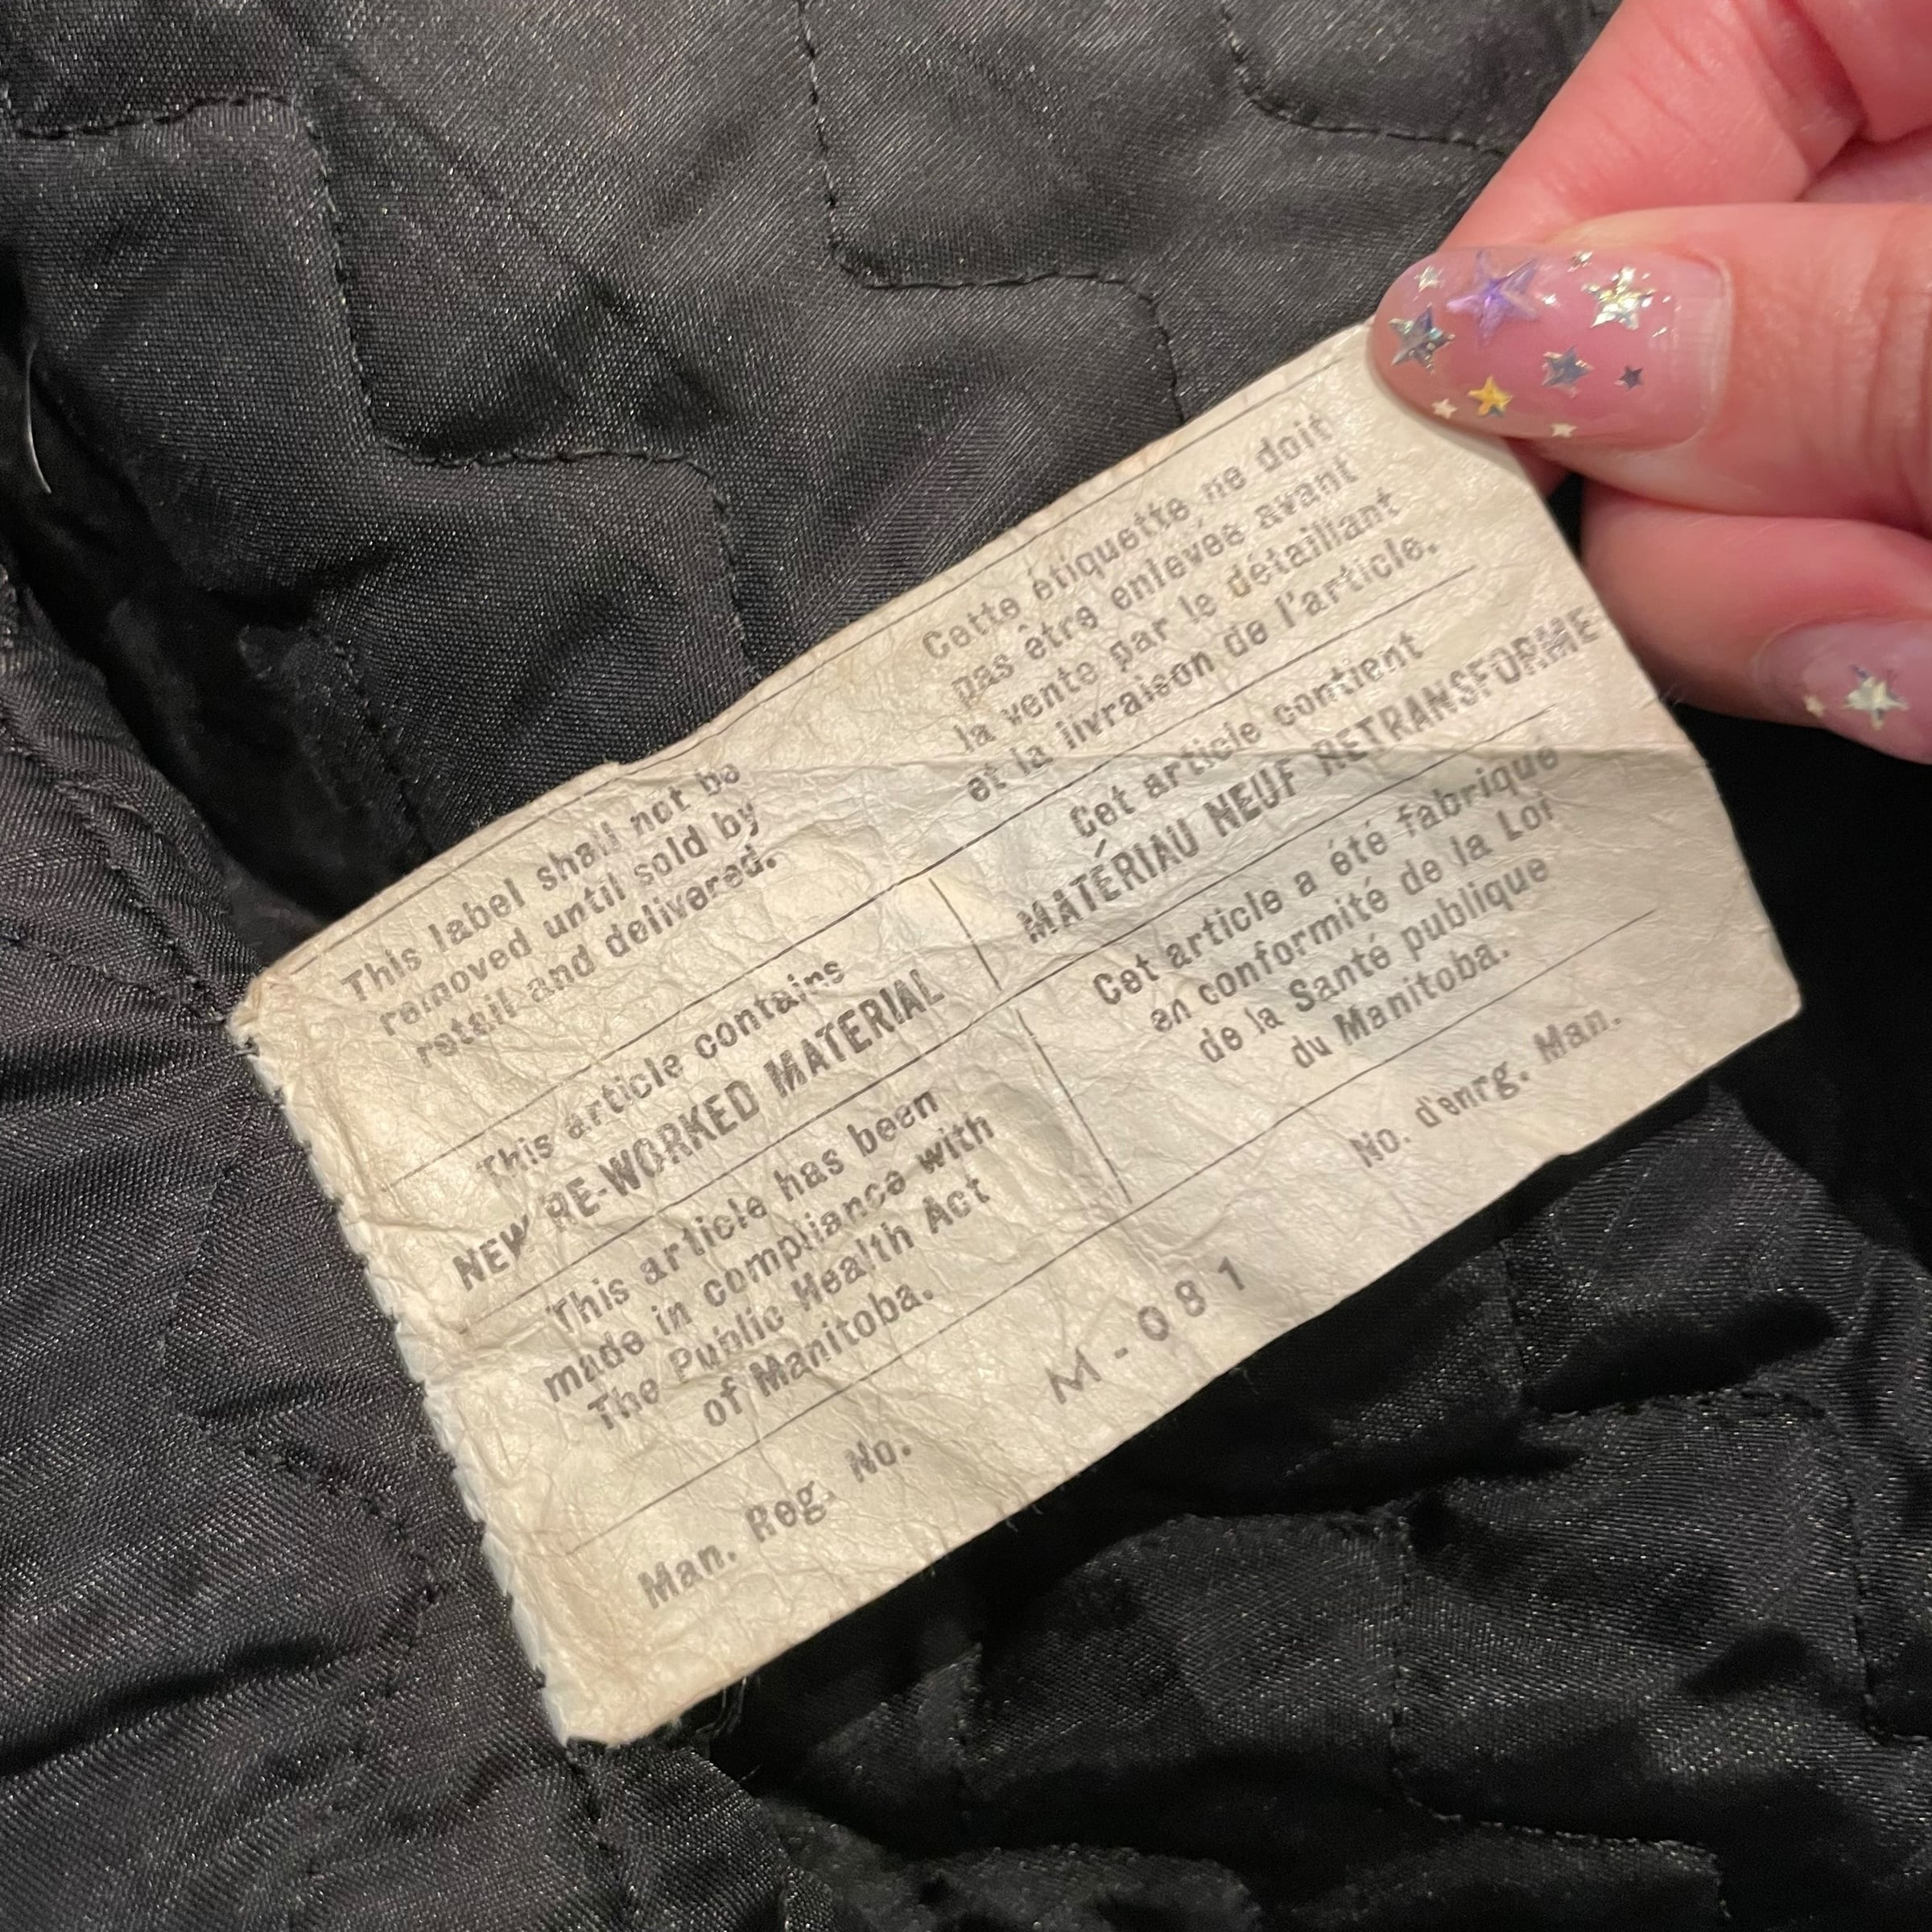 This label shall not be
removed until sold by
retail and delivered.
Cette étiquette ne doit
pas être enlevée avant
la vente par le détaillant
et la livraison de l'article.
This article contains
NEW RE-WORKED MATERIAL
Cet article contient
MATÉRIAU NEUF RETRANSFORMÉ
This article has been
made in compliance with
The Public Health Act
of Manitoba.
Cet article a été fabriqué
en conformité de la Loi
de la Santé publique
du Manitoba.
Man. Reg. No. M-081 No. d'enrg. Man.